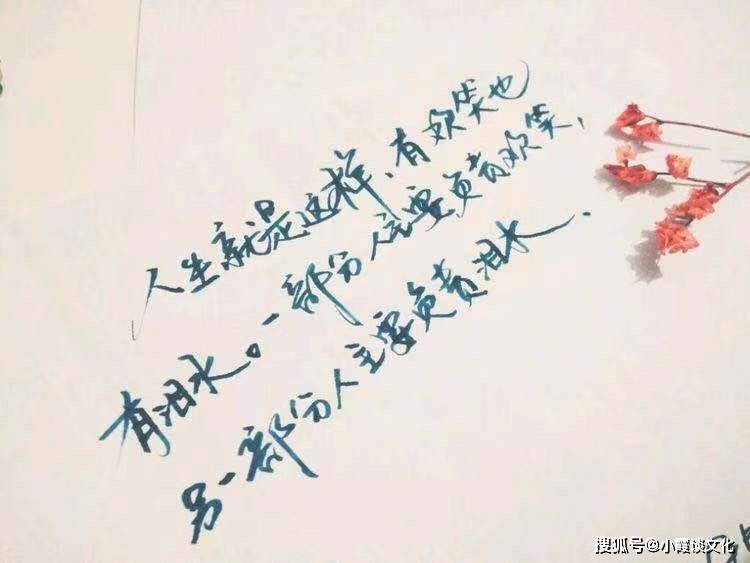 人生就是这样，有欢笑也
有泪水。一部份人主要负责欢笑，
另一部份人主要负责泪水．
搜狐号@小霞谈文化